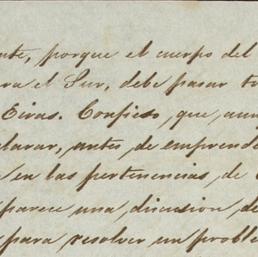 nte, porque el cuerpo del
ra el Sur, debe pasar
Eiras. Confieso, que, aun
clarar, antes, de emprende
en las pertenencias, de
parece una, discusion, de
para resolver un proble